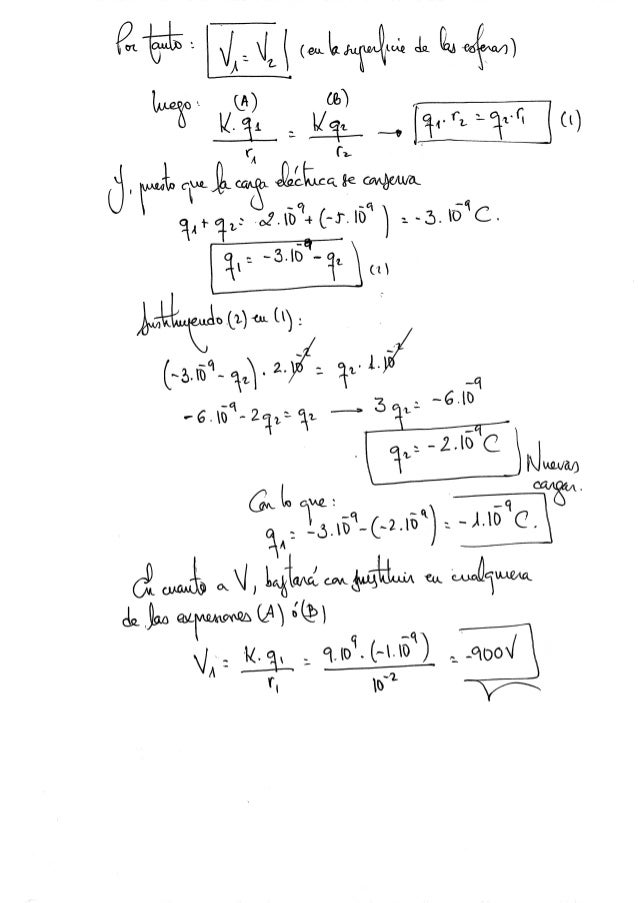 Por tanto: V₁ = V₂ (en la superficie de las esferas)
luego: (A) K·q₁/r₁ = (B) Kq₂/r₂ → q₁·r₂ = q₂·r₁ (1)
Y, puesto que la carga eléctrica se conserva
q₁ + q₂ = 2.10⁻⁹ + (-5.10⁻⁹) = -3.10⁻⁹ C.
q₁ = -3.10⁻⁹ - q₂ (2)
Sustituyendo (2) en (1):
(-3.10⁻⁹ - q₂) · 2.10⁻² = q₂ · 1.10⁻²
-6.10⁻⁹ - 2q₂ = q₂ → 3q₂ = -6.10⁻⁹
q₂ = -2.10⁻⁹ C
Nuevas
cargas.
Con lo que:
q₁ = -3.10⁻⁹ - (-2.10⁻⁹) = -1.10⁻⁹ C.
En cuanto a V, bastará con sustituir en cualquiera
de las expresiones (A) ó (B)
V₁ = K·q₁/r₁ = 9.10⁹·(-1.10⁻⁹)/10⁻² = -900V